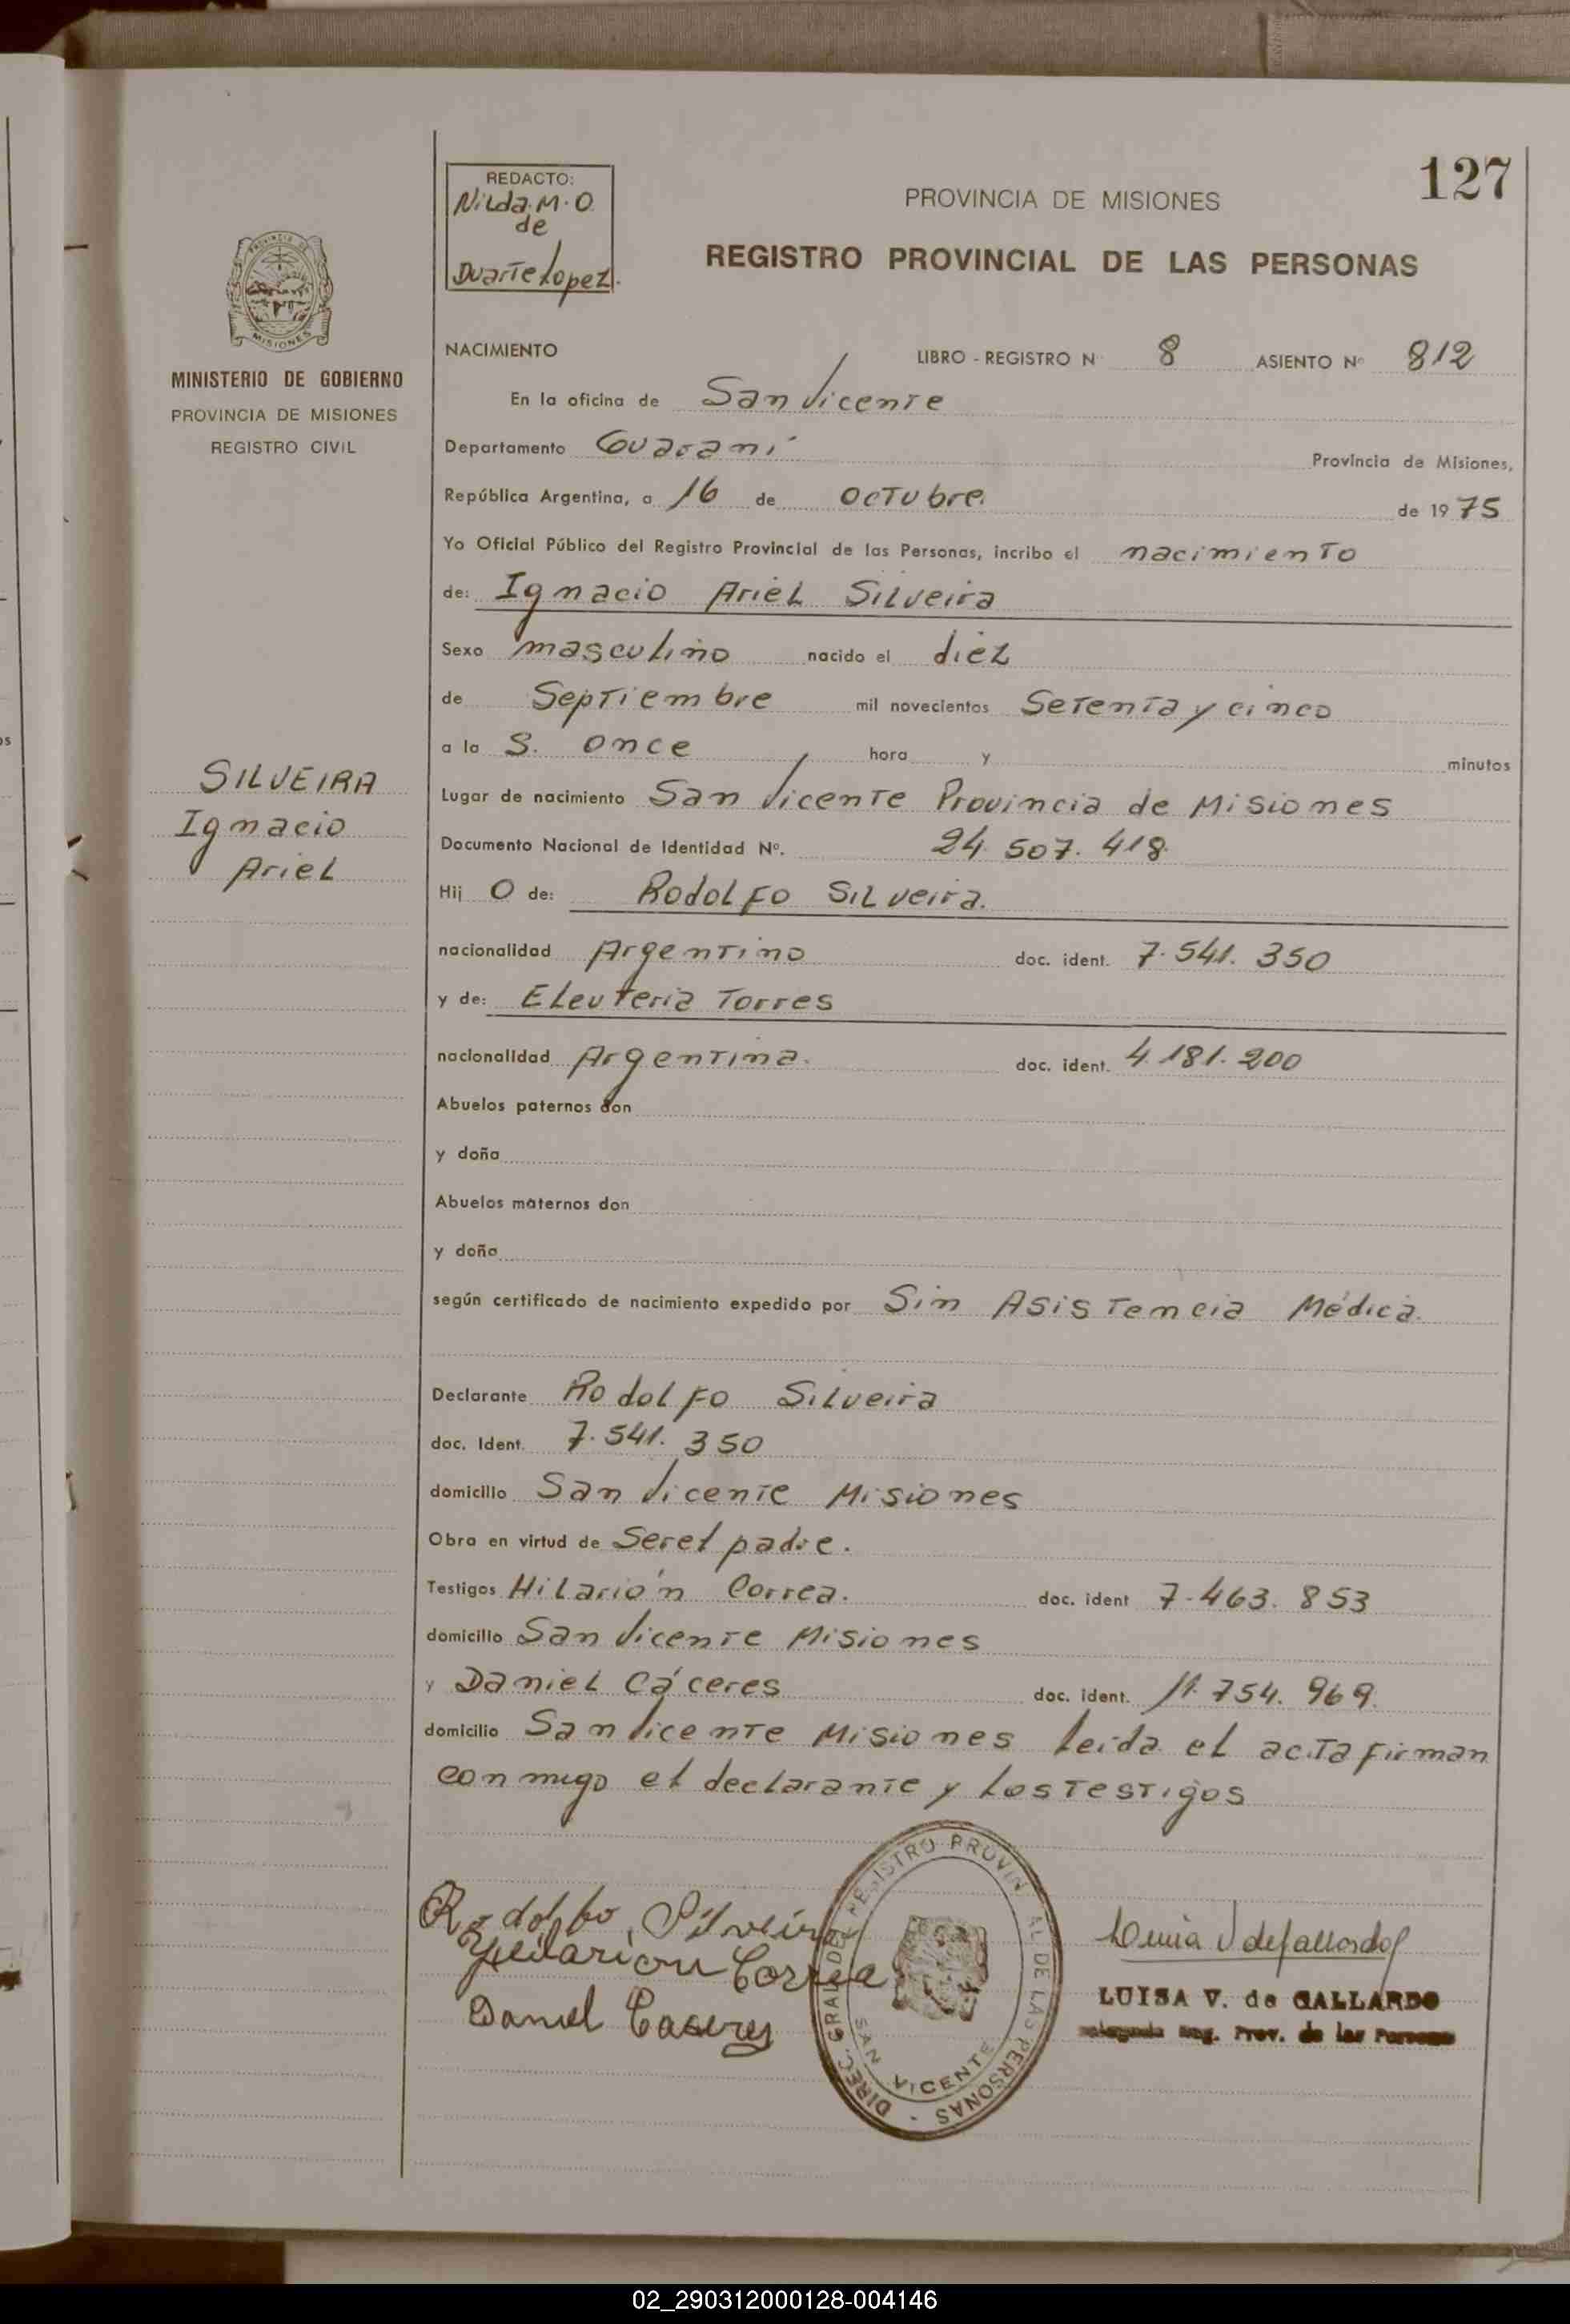 127
REDACTO:
Nilda. M. O.
de
Duarte Lopez.
PROVINCIA DE MISIONES
REGISTRO PROVINCIAL DE LAS PERSONAS
PROVINCIA DE
MISIONES
MINISTERIO DE GOBIERNO
PROVINCIA DE MISIONES
REGISTRO CIVIL
NACIMIENTO LIBRO - REGISTRO N 8 ASIENTO Nº 812
En la oficina de San Vicente
Departamento Guaraní Provincia de Misiones,
República Argentina, a 16 de Octubre. de 19 75
Yo Oficial Público del Registro Provincial de las Personas, incribo el nacimiento
de: Ignacio Ariel Silveira
Sexo masculino nacido el diez
de Septiembre mil novecientos Setenta y cinco
a la s. once hora y minutos
Lugar de nacimiento San Vicente Provincia de Misiones
Documento Nacional de Identidad Nº. 24. 507. 418.
Hij o de: Rodolfo Silveira.
nacionalidad Argentino doc. ident. 7. 541. 350
y de: Eleuteria Torres
nacionalidad Argentina. doc. ident. 4. 181. 200
Abuelos paternos don
y doña
Abuelos maternos don
y doña
según certificado de nacimiento expedido por Sin Asistencia Médica.
Declarante Rodolfo Silveira
doc. Ident. 7. 541. 350
domicilio San Vicente Misiones
Obra en virtud de Ser el padre.
Testigos Hilarión Correa. doc. ident 7. 463. 853
domicilio San Vicente Misiones
y Daniel Cáceres doc. ident. 11. 754. 969.
domicilio San Vicente Misiones leida el acta firman
conmigo el declarante y los testigos
SILVEIRA
Ignacio
Ariel
Rodolfo Silveira
Hilarion Correa
Daniel Caseres
DIREC. GRAL DEL REGISTRO PROVIN AL DE LAS PERSONAS -
SAN VICENTE
LUISA V. de GALLARDO
Reg. Prov. de las Personas
02_290312000128-004146